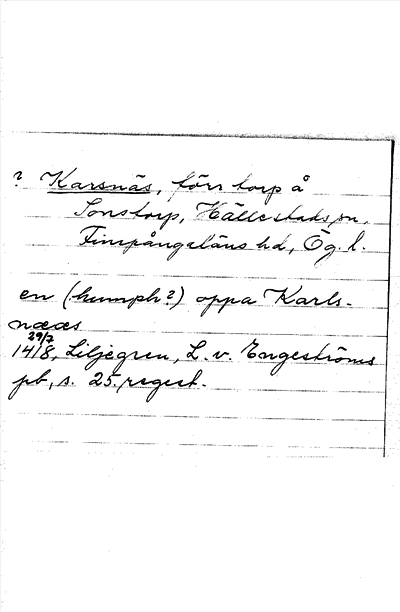 ? Karsnäs, förr torp å
Sonstorp, Hällestads sn,
Finspångaläns hd, Ög. l.
en (humph?) oppa Karls-
nææs
29/7
1418, Liljegren, L. v. Engeströms
pb, s. 25. regest.